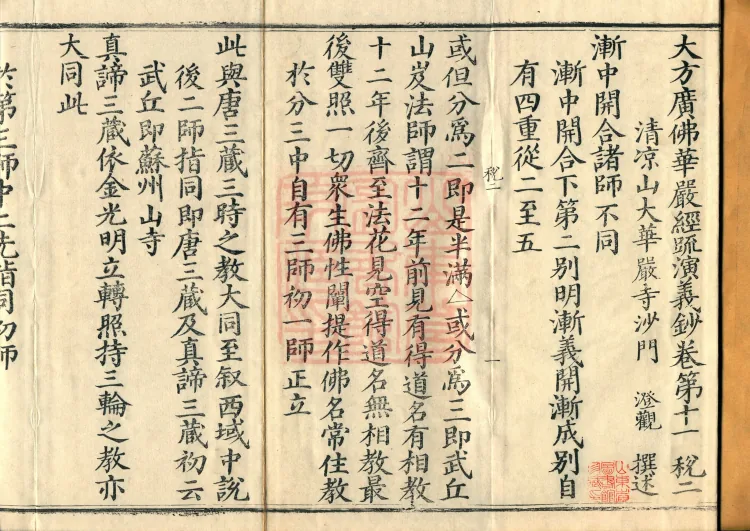 大方廣佛華嚴經䟽演義鈔卷第十一 稅二
清凉山大華嚴寺沙門 澄觀 撰述
漸中開合諸師不同
漸中開合下第二別明漸義開漸成別自
有四重從二至五
稅二
一
或但分爲二即是半滿△或分爲三即武丘
山岌法師謂十二年前見有得道名有相教
十二年後齊至法花見空得道名無相教最
後雙照一切衆生佛性闡提作佛名常住教
於分三中自有三師初一師正立
此與唐三藏三時之教大同至叙西域中說
後二師指同即唐三藏及真諦三藏初云
武丘即蘇州山寺
真諦三藏依金光明立轉照持三輪之教亦
大同此
於第三師中二先指同初師